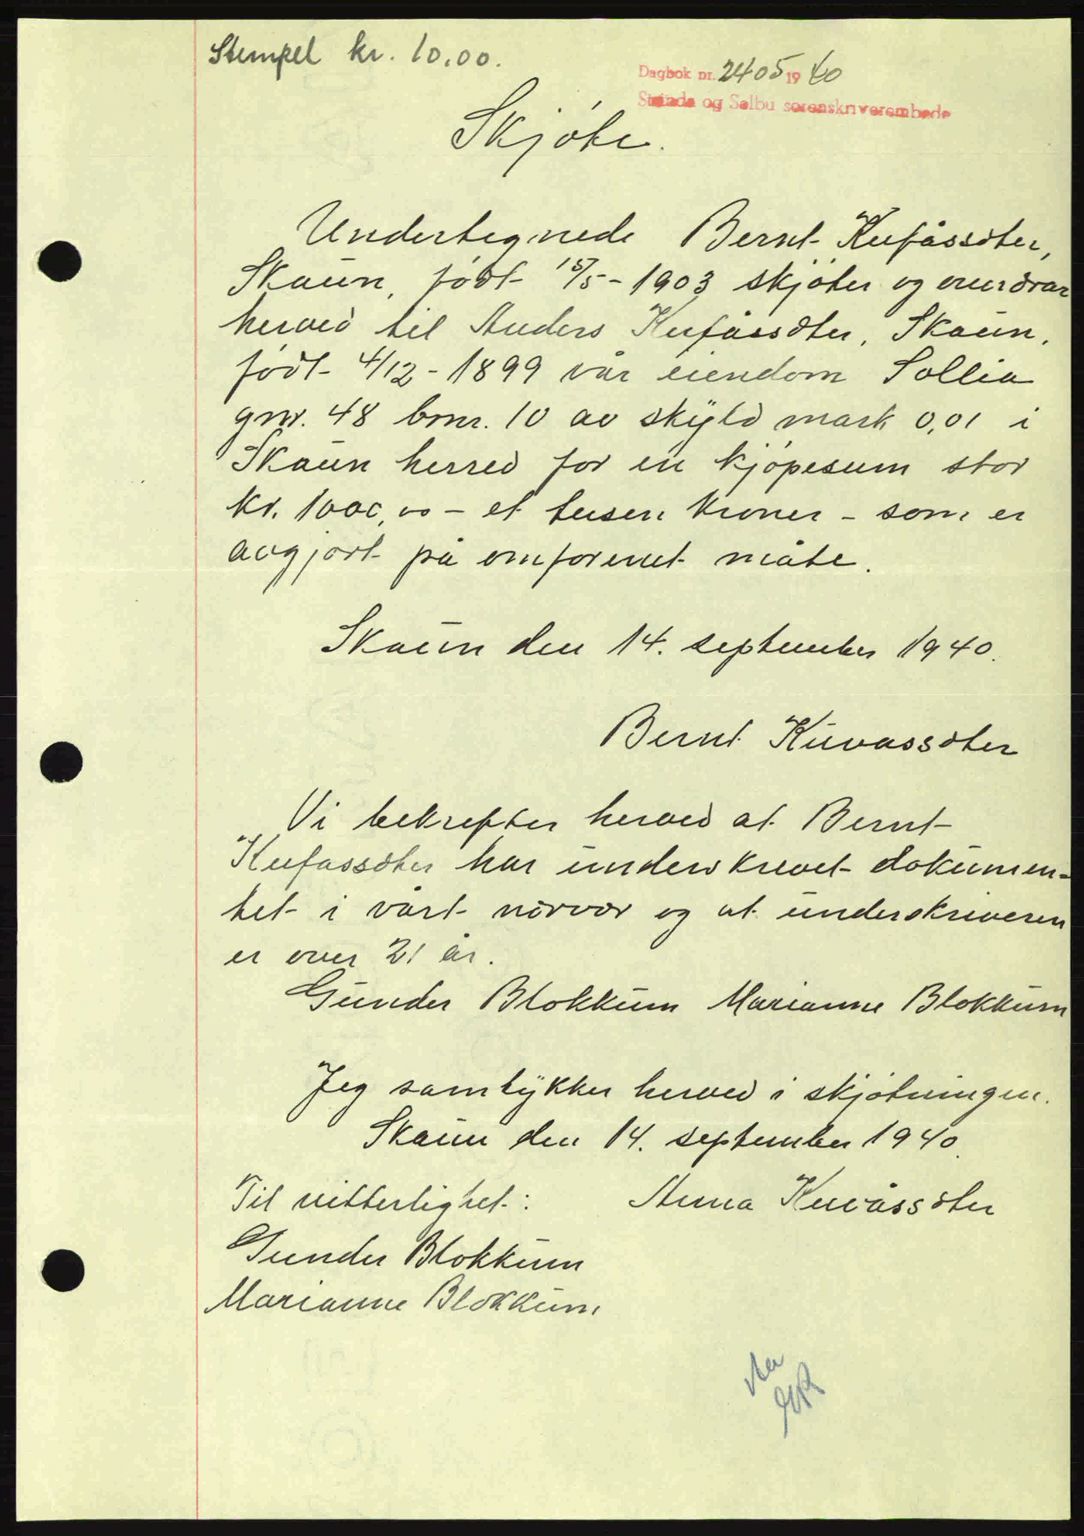 Stempel kr. 10.00.
Dagbok nr. 2405 1940
Strinda og Selbu sorenskriverembede
Skjøte.
Undertegnede Bernt Kufåssæter,
Skaun, født 15/5-1903 skjøter og overdrar
herved til Anders Kufåssæter, Skaun,
født 4/12-1899 vår eiendom Sollia
gnr. 48 bnr. 10 av skyld mark 0,01 i
Skaun herred for en kjøpesum stor
kr. 1000,00 - et tusen kroner - som er
avgjort på omforenet måte.
Skaun den 14. september 1940.
Bernt Kuvassæter
Vi bekrefter herved at Bernt
Kufassæter har underskrevet dokumen-
tet i vårt nærvær og at underskriveren
er over 21 år.
Gunder Blokkum Marianne Blokkum
Jeg samtykker herved i skjøtningen.
Skaun den 14. september 1940.
Til vitterlighet: Anna Kuvåssæter
Gunder Blokkum
Marianne Blokkum